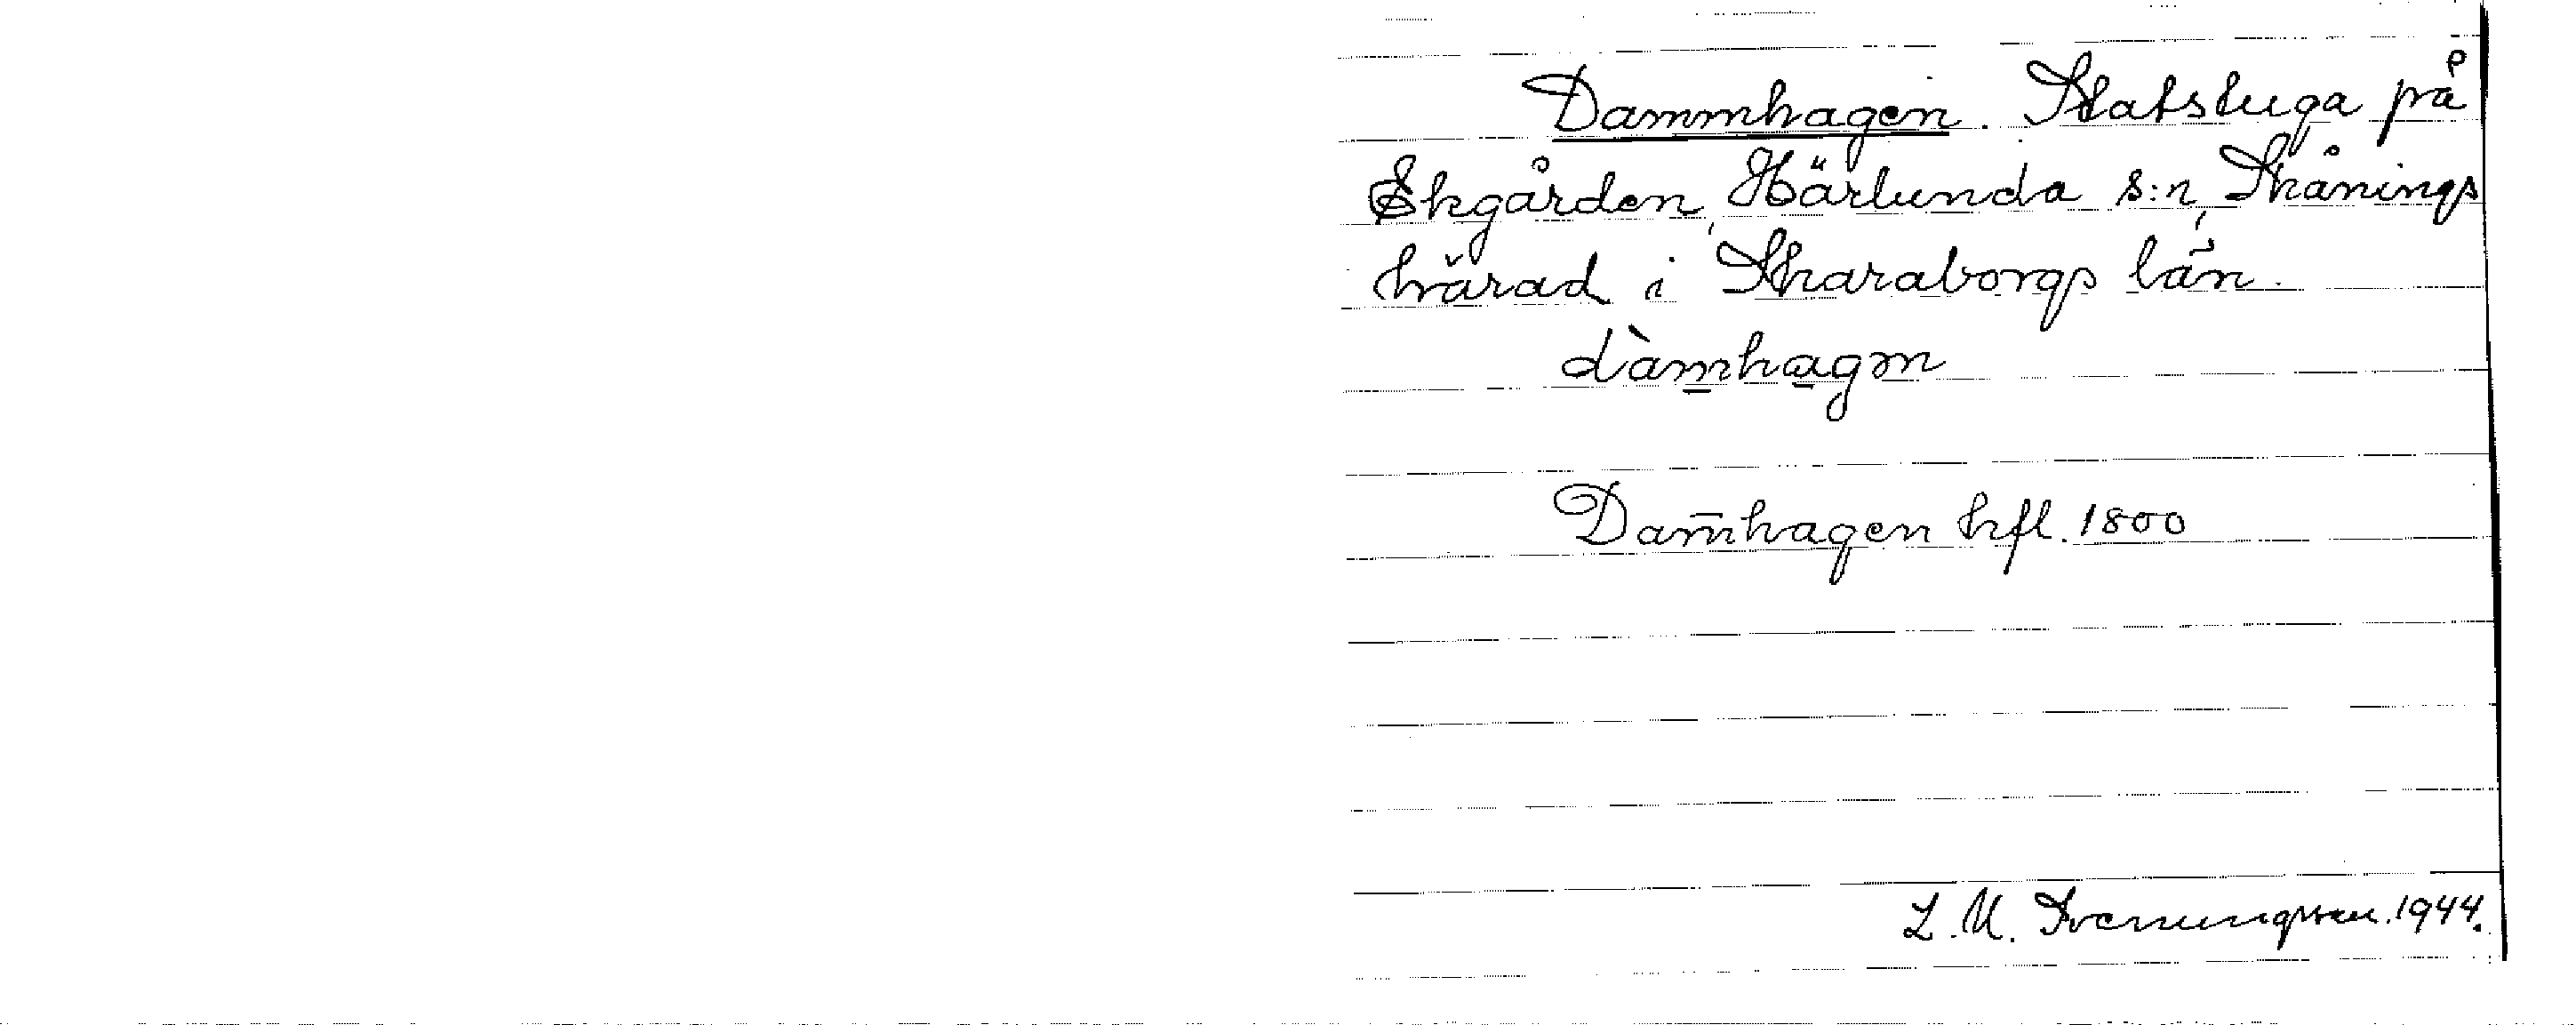 Dammhagen. Statstuga på
Ekgården, Härlunda s:n, Skånings
härad i Skaraborgs län.
dàm̲ha̲gən
Dam̄hagen hfl. 1800
L. U. Svenungsson. 1944.